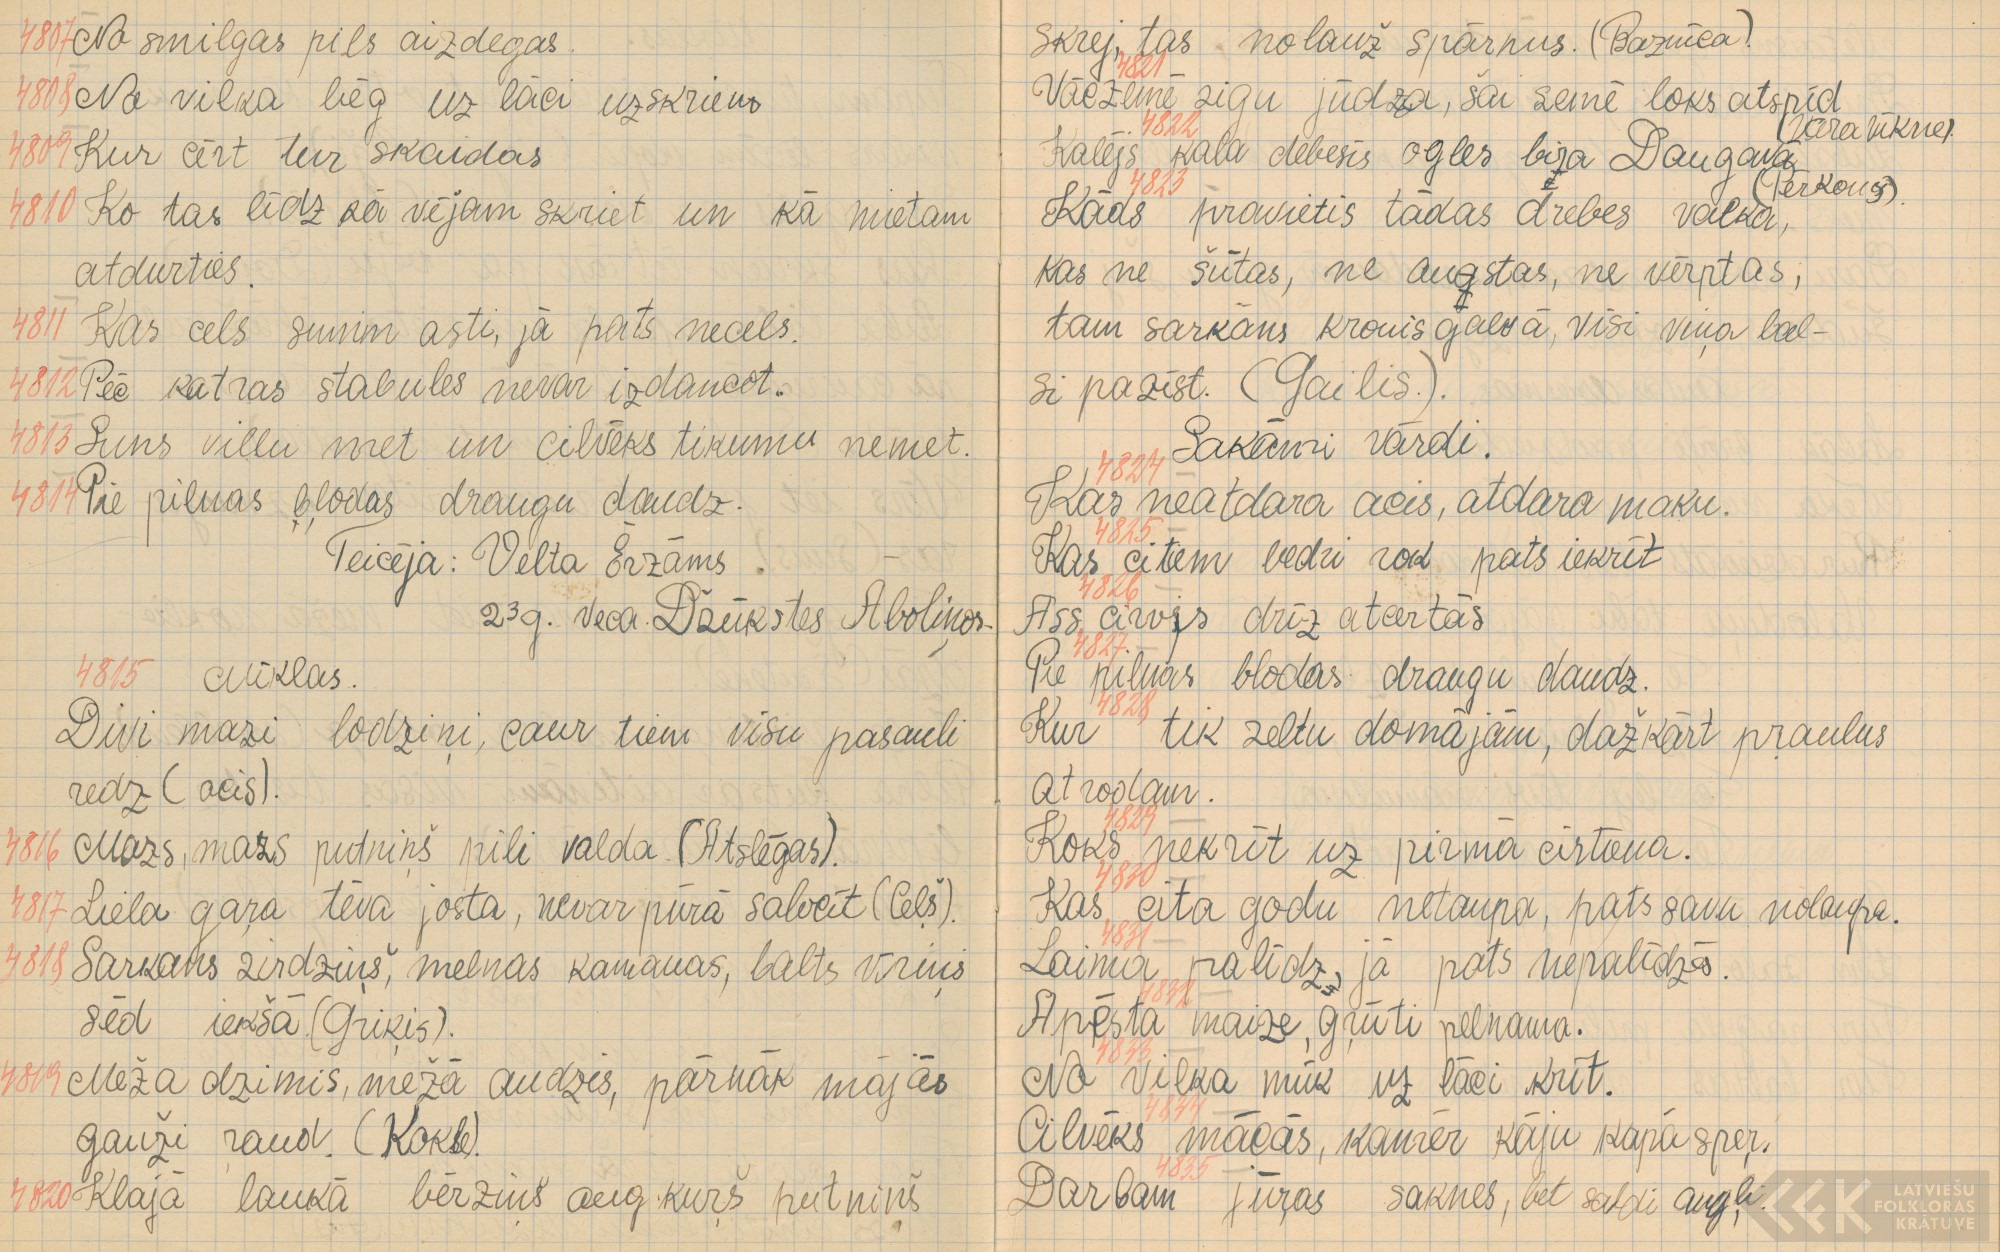 4807 No smilgas pils aizdegas.
4808 No vilka bēg uz lāci uzskrien
4809 Kur cērt tur skaidas
4810 Ko tas līdz kā vējam skriet un kā mietam
atdurties.
4811 Kas cels sunim asti, jā pats necels.
4812 Pēc katras stabules nevar izdancot.
4813 Suns villu met un cilvēks tikumu nemet.
4814 Pie pilnas bļodas draugu daudz.
Teicēja: Velta Ērzāms.
23g. veca. Džūkstes Āboliņos.
4815 Mīklas.
Divi mazi lodziņi, caur tiem visu pasauli
redz (acis).
4816 Mazs, mazs putniņš pili valda. (Atslēgas).
4817 Liela gaŗa tēva josta, nevar pūrā salocīt (Ceļš).
4818 Sarkans zirdziņš, melnas kamanas, balts vīriņs
sēd iekšā. (Griķis).
4819 Mežā dzimis, mežā audzis, pārnāk mājās
gauži raud. (Kokle).
4820 Klajā laukā bērziņš aug kurš putniņš
skrej, tas nolauž spārnus. (Baznīca).
4821
Vāczemē zigu jūdza, šai zemē loks atspīd
(Varavīksne).
4822
Kalējs kala debesīs ogles bira Daugavā
(Pērkons).
4823
Kāds pravietis tādas drēbes valkā,
kas ne šūtas, ne augstas, ne vērptas,
tam sarkans kronis galvā, visi viņa bal-
si pazīst. (Gailis.).
Sakāmi vārdi.
4824
Kas neatdara acis, atdara maku.
4825
Kas citem bedri rok pats iekrīt
4826
Ass cirvjs drīz atcertās
4827
Pie pilnas blodas draugu daudz.
4828
Kur tik zeltu domājām, dažkārt praulus
atrodam.
4829
Koks nekrīt uz pirmā cirtēna.
4830
Kas cita godu netaupa, pats savu nolaupa.
4831
Laima palīdz, jā pats nepalīdzēs.
4832
Apēsta maize, grūti pelnama.
4833
No vilka mūk uz lāci krīt.
4834
Cilvēks mācās, kamēr kāju kapā sper.
4835
Darbam jūŗas saknes, bet saldi augļi.
LATVIEŠU
FOLKLORAS
KRĀTUVE